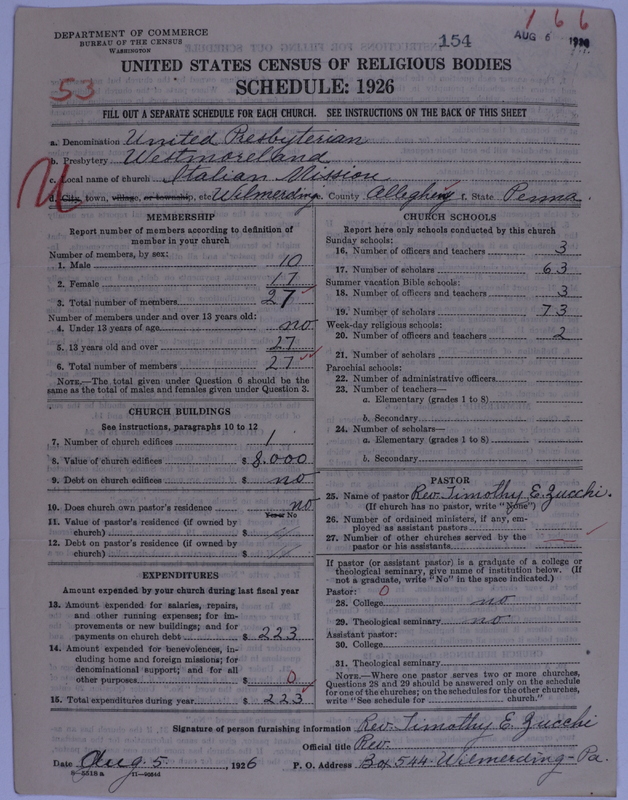 166
DEPARTMENT OF COMMERCE
BUREAU OF THE CENSUS
WASHINGTON
154
AUG 6 1926
UNITED STATES CENSUS OF RELIGIOUS BODIES
53
SCHEDULE: 1926
FILL OUT A SEPARATE SCHEDULE FOR EACH CHURCH. SEE INSTRUCTIONS ON THE BACK OF THIS SHEET
a. Denomination United Presbyterian
b. Presbytery Westmoreland
c. Local name of church Italian Mission
d. City, town, village, or township, etc Wilmerding e. County Allegheny f. State Penna.
MEMBERSHIP
Report number of members according to definition of
member in your church
Number of members, by sex:
1. Male 10
2. Female 17
3. Total number of members 27
Number of members under and over 13 years old:
4. Under 13 years of age no
5. 13 years old and over 27
6. Total number of members 27
NOTE.—The total given under Question 6 should be the
same as the total of males and females given under Question 3.
CHURCH BUILDINGS
See instructions, paragraphs 10 to 12
7. Number of church edifices 1
8. Value of church edifices $ 8.000
9. Debt on church edifices $ no
10. Does church own pastor's residence no
Yes or No
11. Value of pastor's residence (if owned by
church) $
12. Debt on pastor's residence (if owned by
church) $
EXPENDITURES
Amount expended by your church during last fiscal year
13. Amount expended for salaries, repairs,
and other running expenses; for im-
provements or new buildings; and for
payments on church debt $ 223
14. Amount expended for benevolences, in-
cluding home and foreign missions; for
denominational support; and for all
other purposes $ 0
15. Total expenditures during year $ 223
CHURCH SCHOOLS
Report here only schools conducted by this church
Sunday schools:
16. Number of officers and teachers 3
17. Number of scholars 63
Summer vacation Bible schools:
18. Number of officers and teachers 3
19. Number of scholars 73
Week-day religious schools:
20. Number of officers and teachers 2
21. Number of scholars
Parochial schools:
22. Number of administrative officers
23. Number of teachers—
a. Elementary (grades 1 to 8)
b. Secondary
24. Number of scholars—
a. Elementary (grades 1 to 8)
b. Secondary
PASTOR
25. Name of pastor Rev. Timothy E. Zucchi.
(If church has no pastor, write "None")
26. Number of ordained ministers, if any, em-
ployed as assistant pastors
27. Number of other churches served by the
pastor or his assistants
If pastor (or assistant pastor) is a graduate of a college or
theological seminary, give name of institution below. (If
not a graduate, write "No" in the space indicated.)
Pastor: 0
28. College no
29. Theological seminary no
Assistant pastor:
30. College
31. Theological seminary
NOTE.—Where one pastor serves two or more churches,
Questions 28 and 29 should be answered only on the schedule
for one of the churches; on the schedules for the other churches,
write "See schedule for church."
Signature of person furnishing information Rev. Timothy E. Zucchi
Official title Rev.
Date Aug. 5, 1926 P. O. Address Box 544 Wilmerding-Pa.
8-5518a